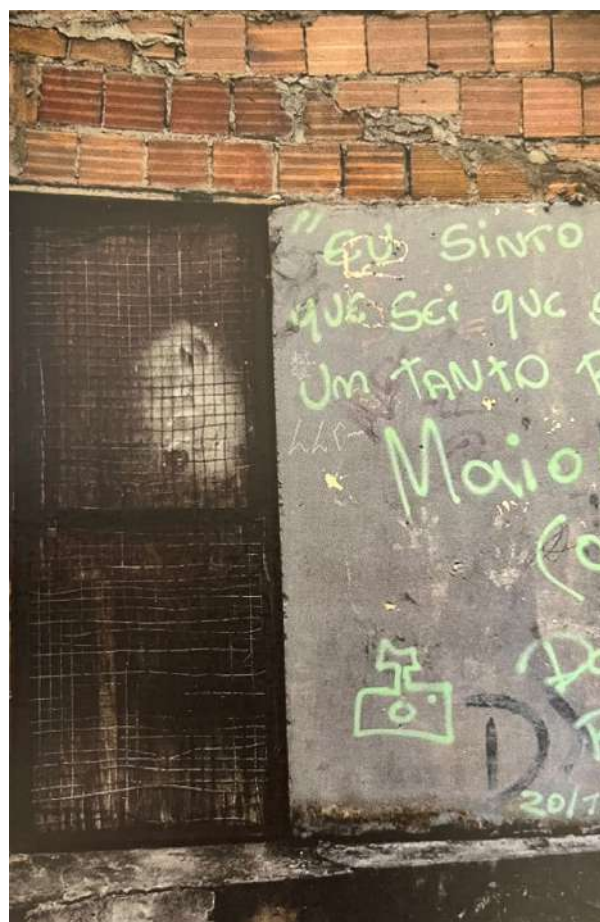 "EU SINTO
QUE SEI QUE S
UM TANTO
Maio
Do
20/